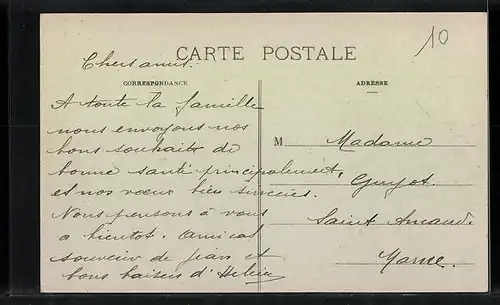 10
CARTE POSTALE
Chers amis.
CORRESPONDANCE
A toute la famille
nous envoyons nos
bons souhaits de
bonne santé principalement,
et nos vœux bien sincères.
Nous pensons à vous
a bientot. amical
souvenir de jean et
bons baisers d'Helène
ADRESSE
M Madame
Guyot.
Saint Amand.
Marne.